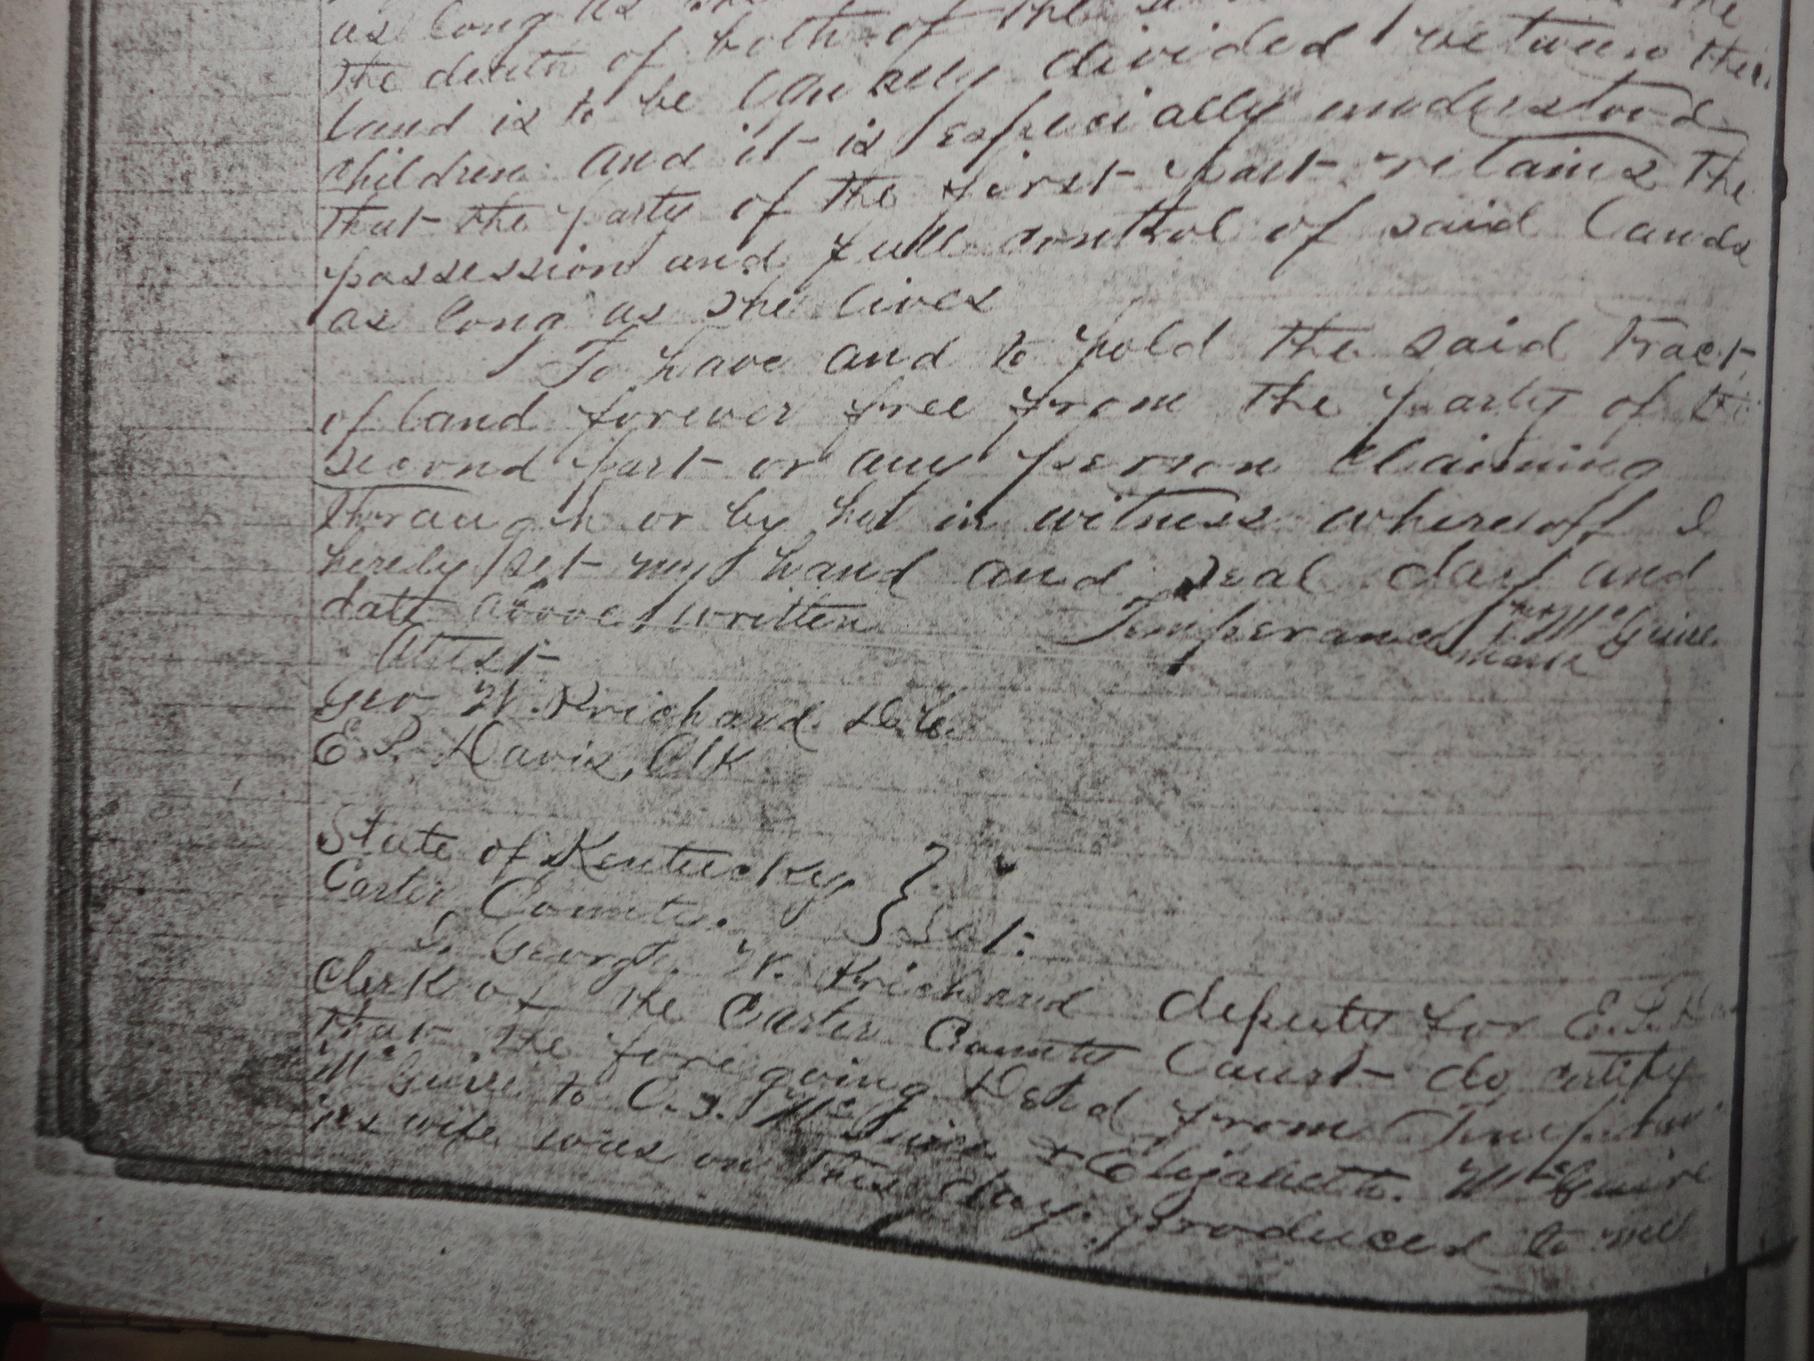 as long as the
the death of both of the
land is to be equally divided between their
children and it is especially understood
that the party of the first part retains the
possession and full control of said lands
as long as she lives
To have and to hold the said tract
of land forever free from the party of the
second part or any person claiming
through or by her in witness whereoff I
hereby set my hand and seal day and
date above written Temperance her x mark McGuire
Attest
Geo W. Prichard D.C.
E.P. Davis, Clk
State of Kentucky }
Carter County. } Sct:
I. George. W. Prichard deputy for E.P.
Clerk of the Carter County Court do certify
that the foregoing Deed from
McGuire to C. J. McGuire & Elizabeth. McGuire
his wife was on this day. produced to me